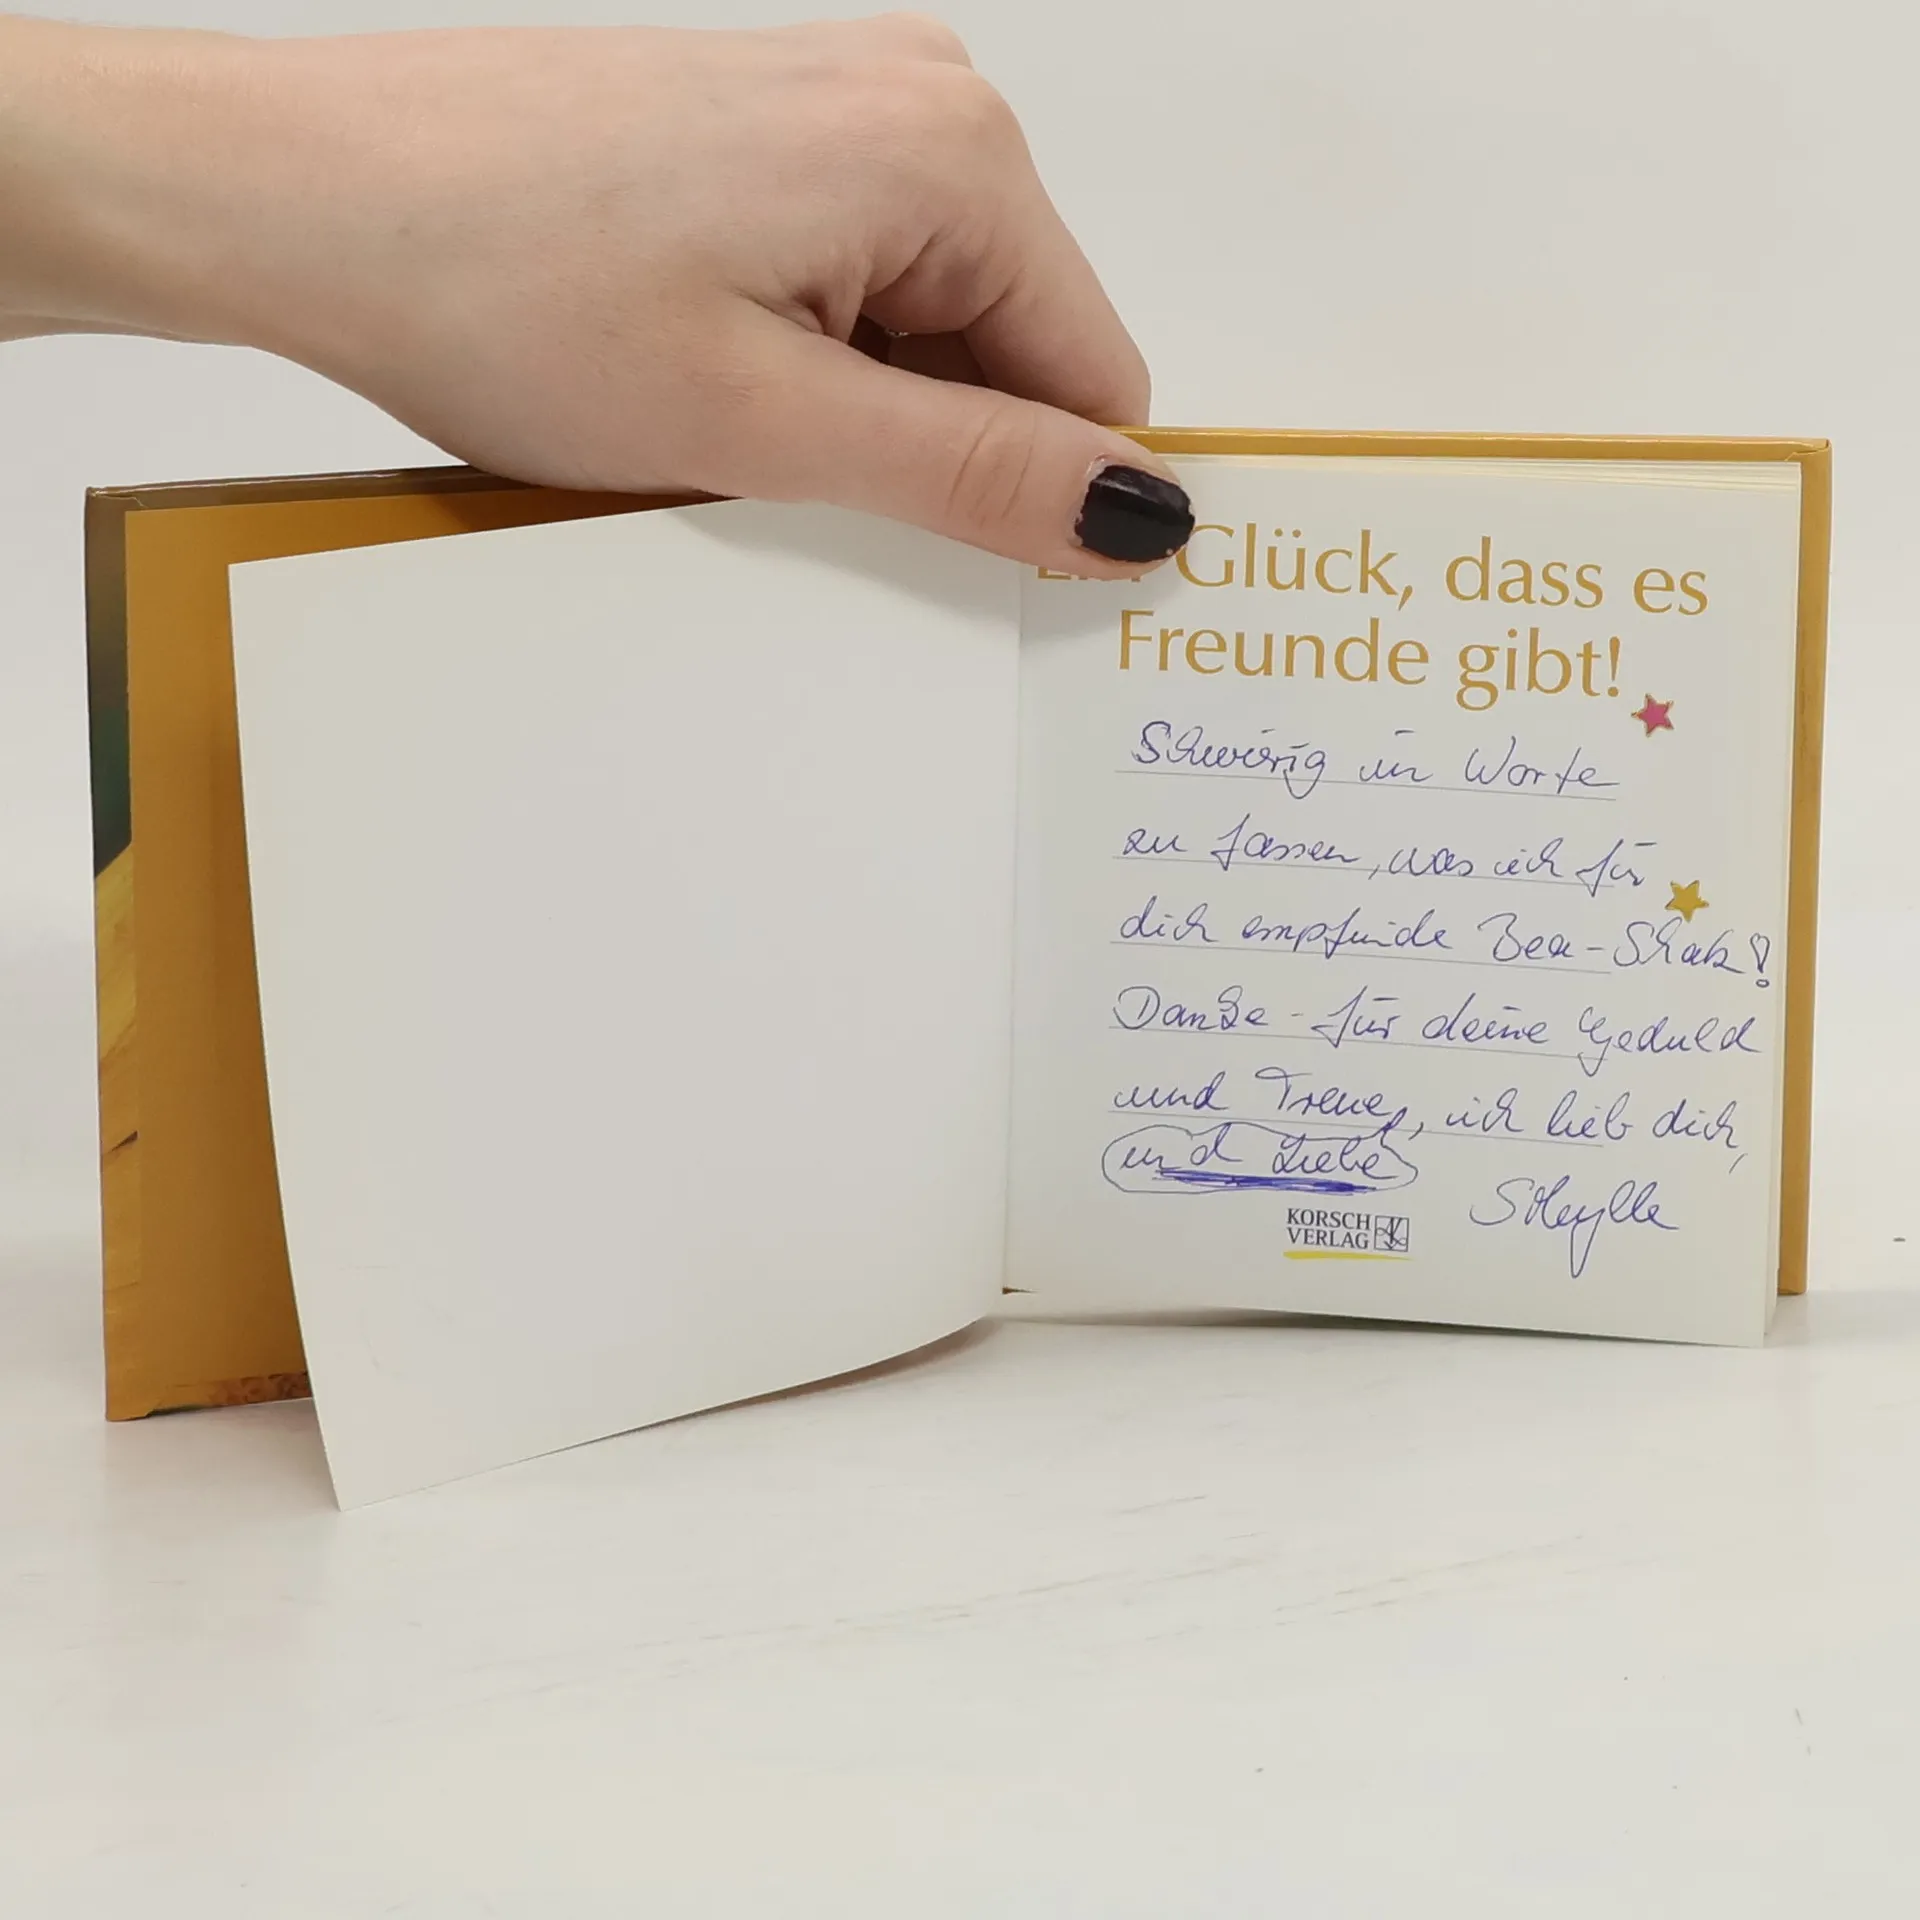 Glück, dass es
Freunde gibt!
Schwierig in Worte
zu fassen, was ich für
dich empfinde Bea-Schatz!
Danke - für deine Geduld
und Treue, ich lieb dich,
und Liebe
Sibylle
KORSCH
VERLAG